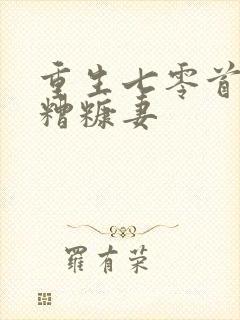 重生七零首
糟糠妻
羅有荣